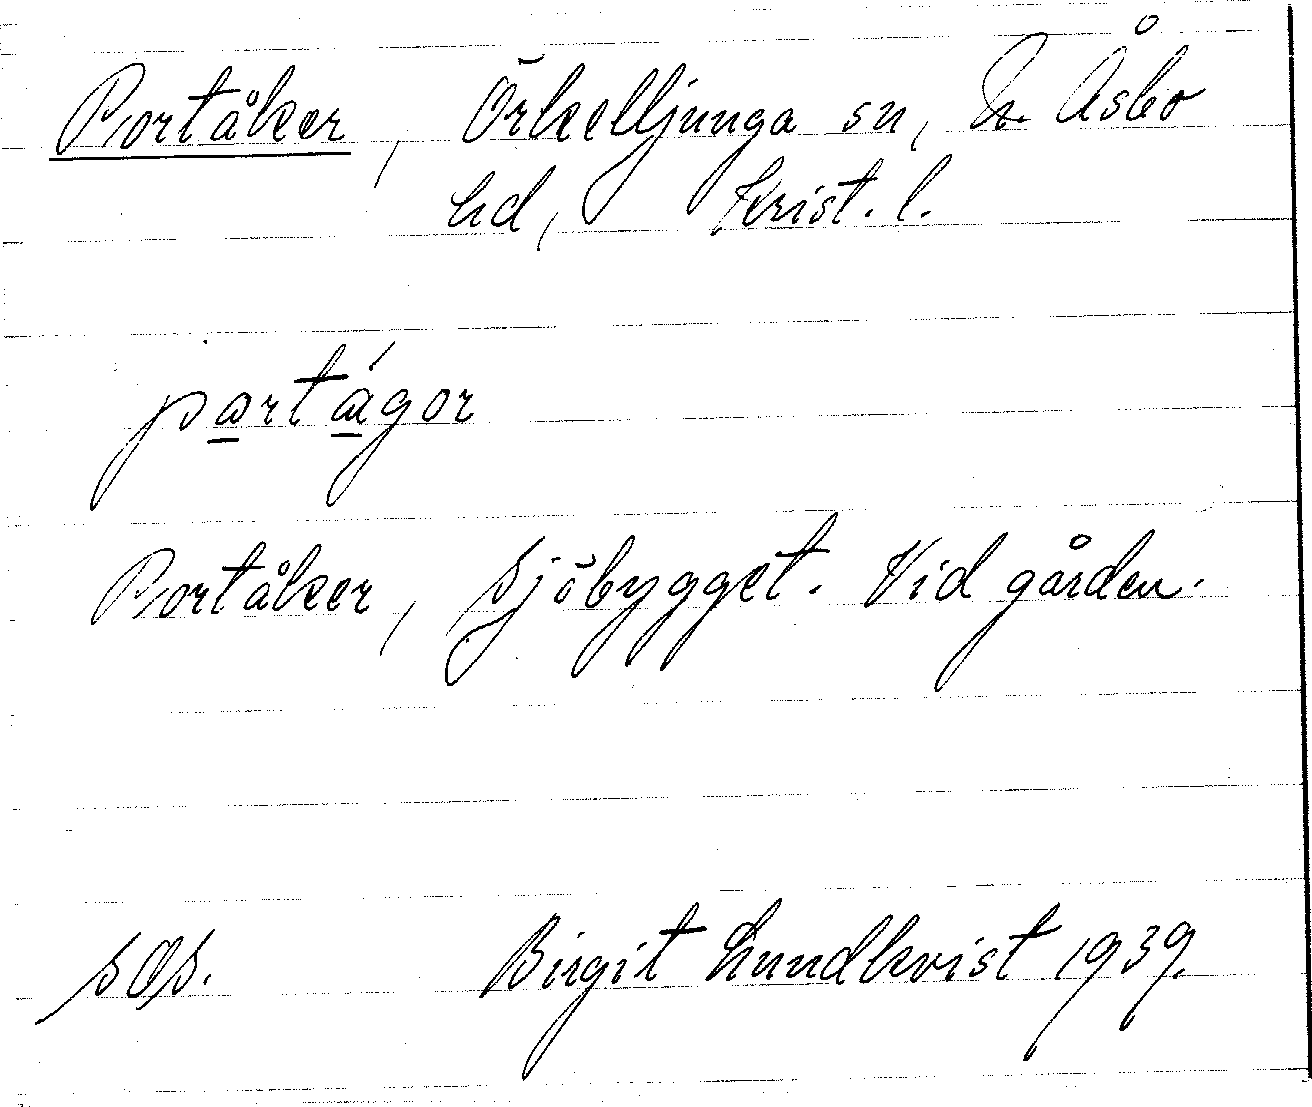 Portåker, Örkelljunga sn, N. Åsbo
hd, Krist. l.
partágor
Portåker, Sjöbygget. Vid gården.
Birgit Lundkvist 1939.